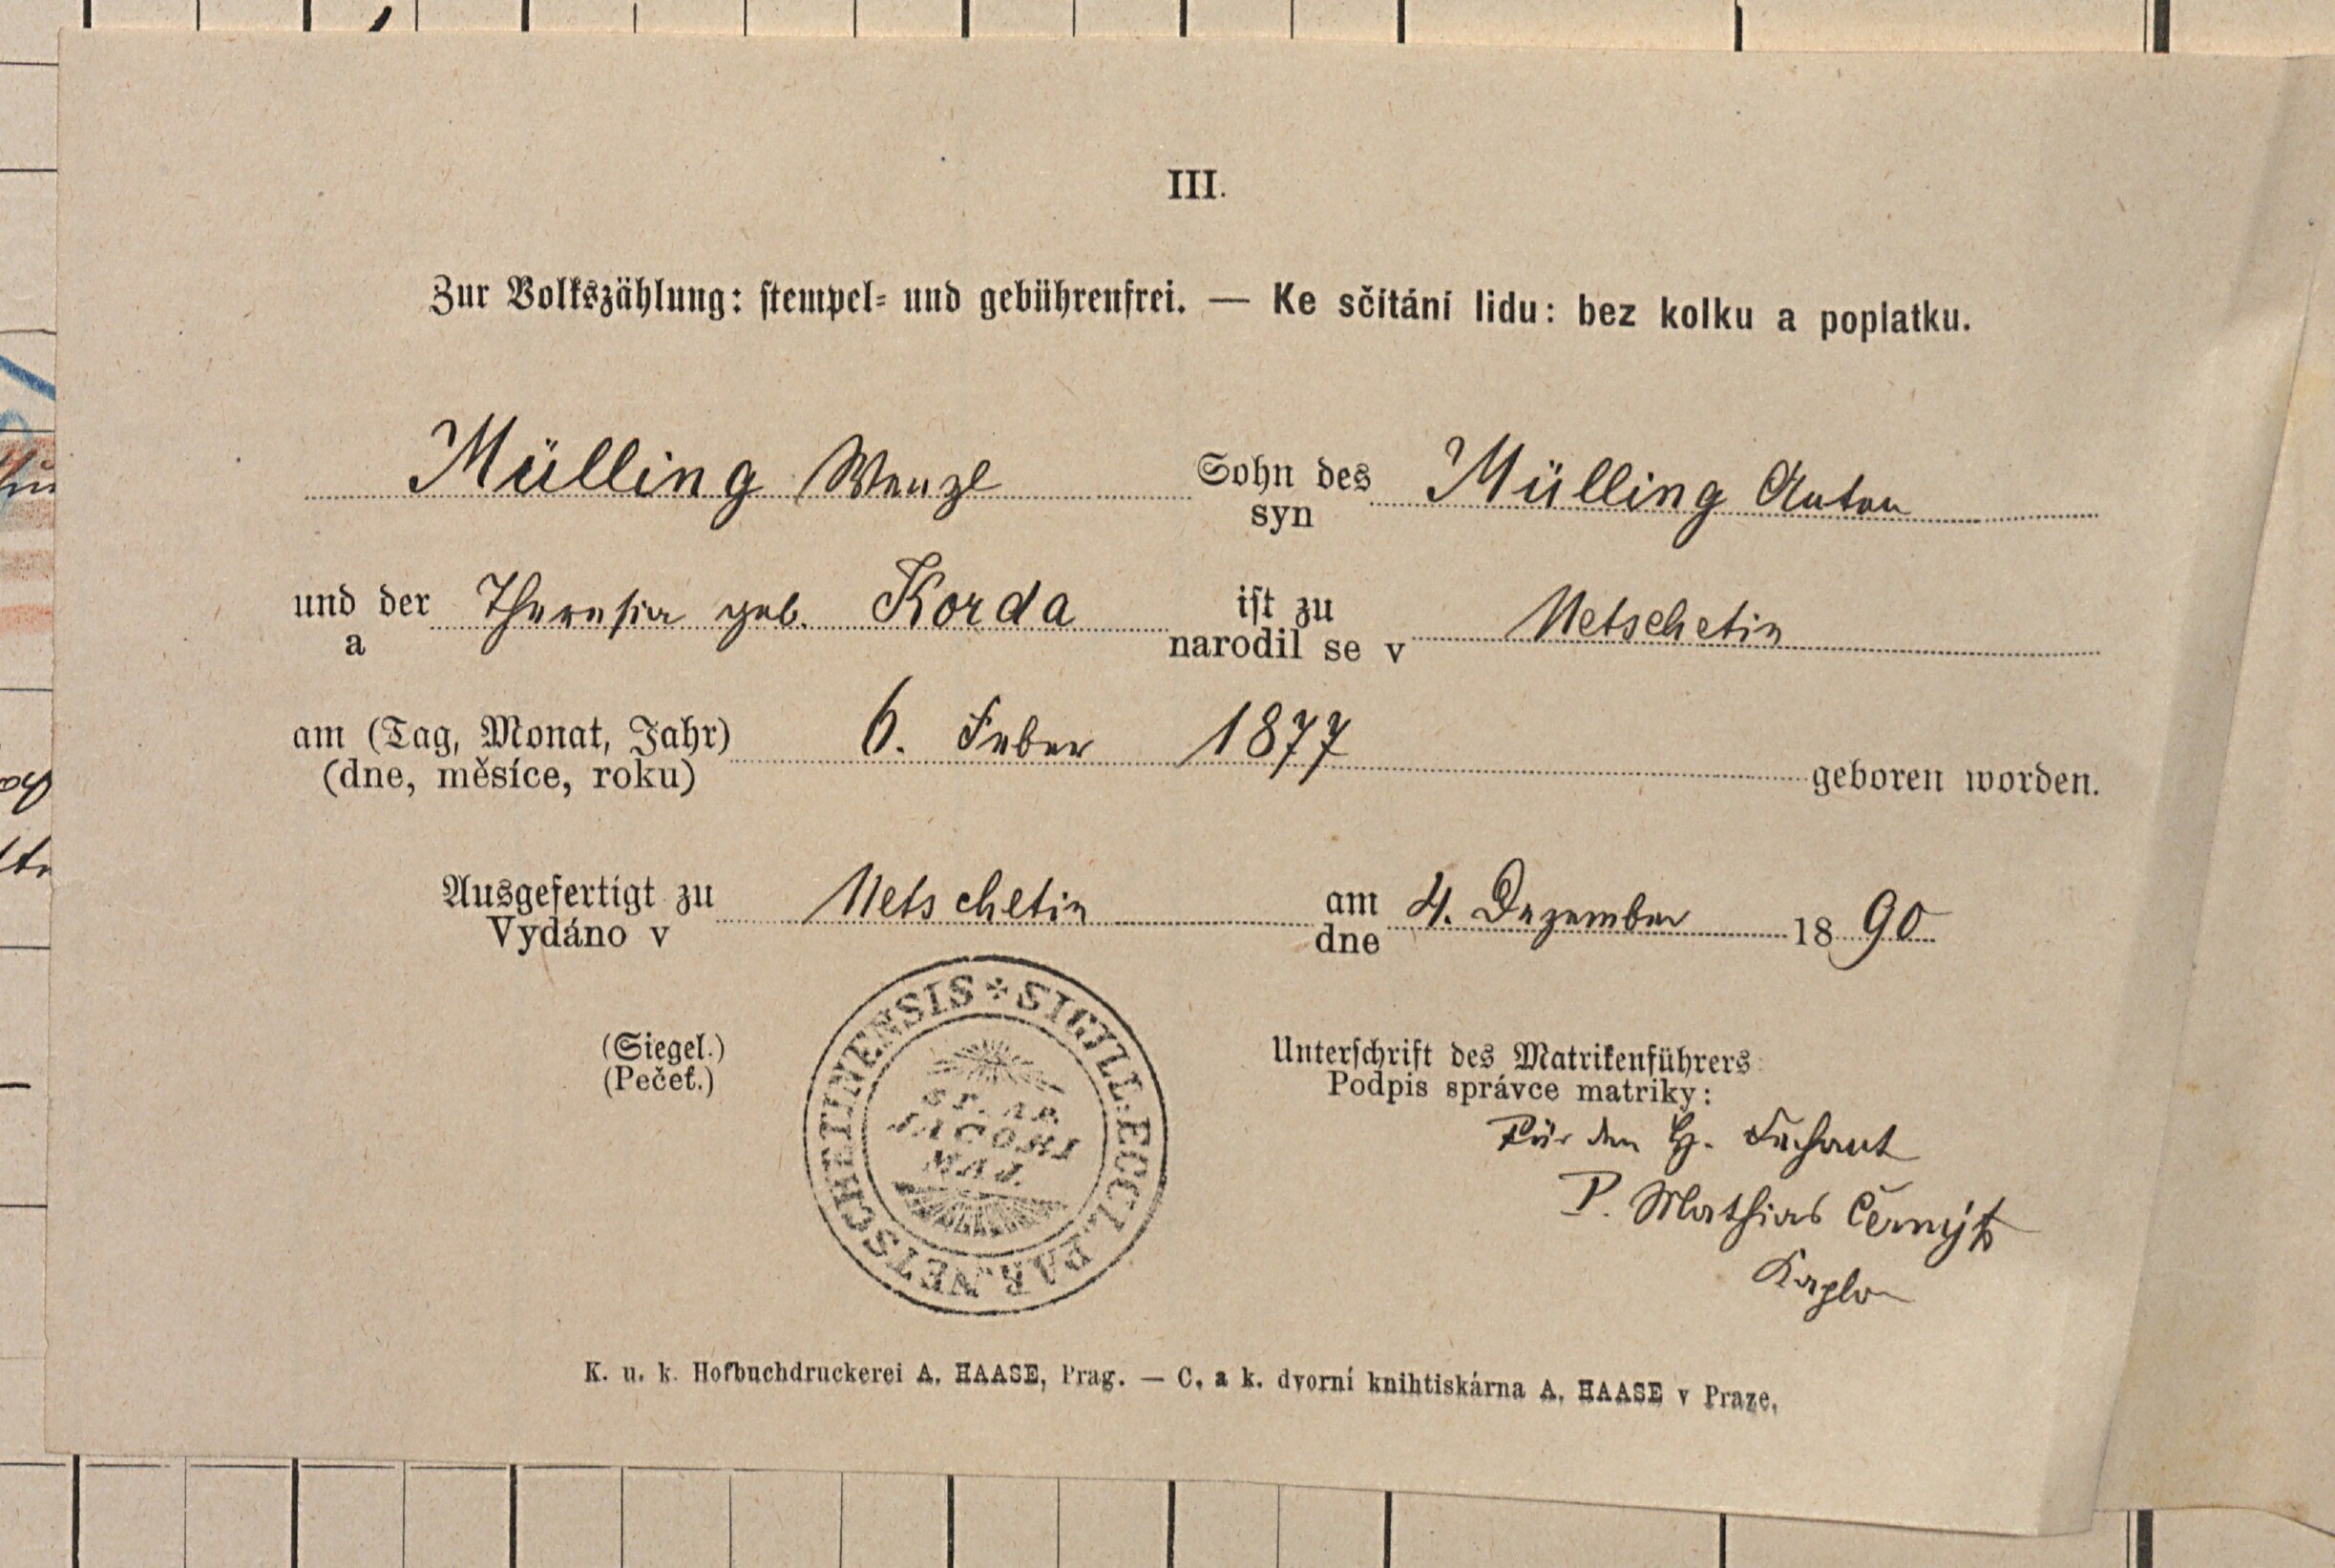 III.
Zur Volkszählung: stempel- und gebührenfrei. — Ke sčítání lidu: bez kolku a poplatku.
Mülling Wenzl Sohn des Mülling Anton
syn
und der Theresia geb. Korda ist zu Netschetin
a narodil se v
am (Tag, Monat, Jahr) 6. Feber 1877 geboren worden.
(dne, měsíce, roku)
Ausgefertigt zu Netschetin am 4. Dezember 1890
Vydáno v dne
(Siegel.)
(Pečeť.)
SIGILL. ECCL. PAR. NETSCHETINENSIS
ST. AP.
JACOBI
MAJ.
Unterschrift des Matrikenführers
Podpis správce matriky:
Für den H. Dechant
P. Mathias Černý
Kaplan
K. u. k. Hofbuchdruckerei A. HAASE, Prag. — C. a k. dvorní knihtiskárna A. HAASE v Praze.